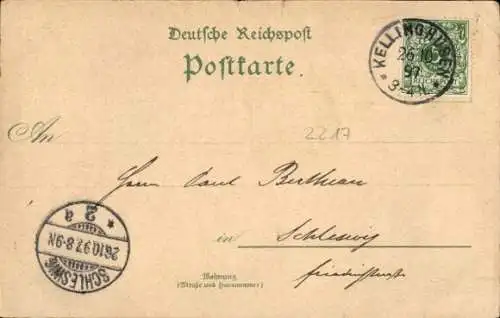 Deutsche Reichspost
Postkarte.
KELLINGHUSEN
26 10
97
3-4N.
2217
An
Herrn Paul
in Schleswig
Friedrichstr
Wohnung
(Straße und Hausnummer)
SCHLESWIG
26.10.97.8-9N
* 2 a